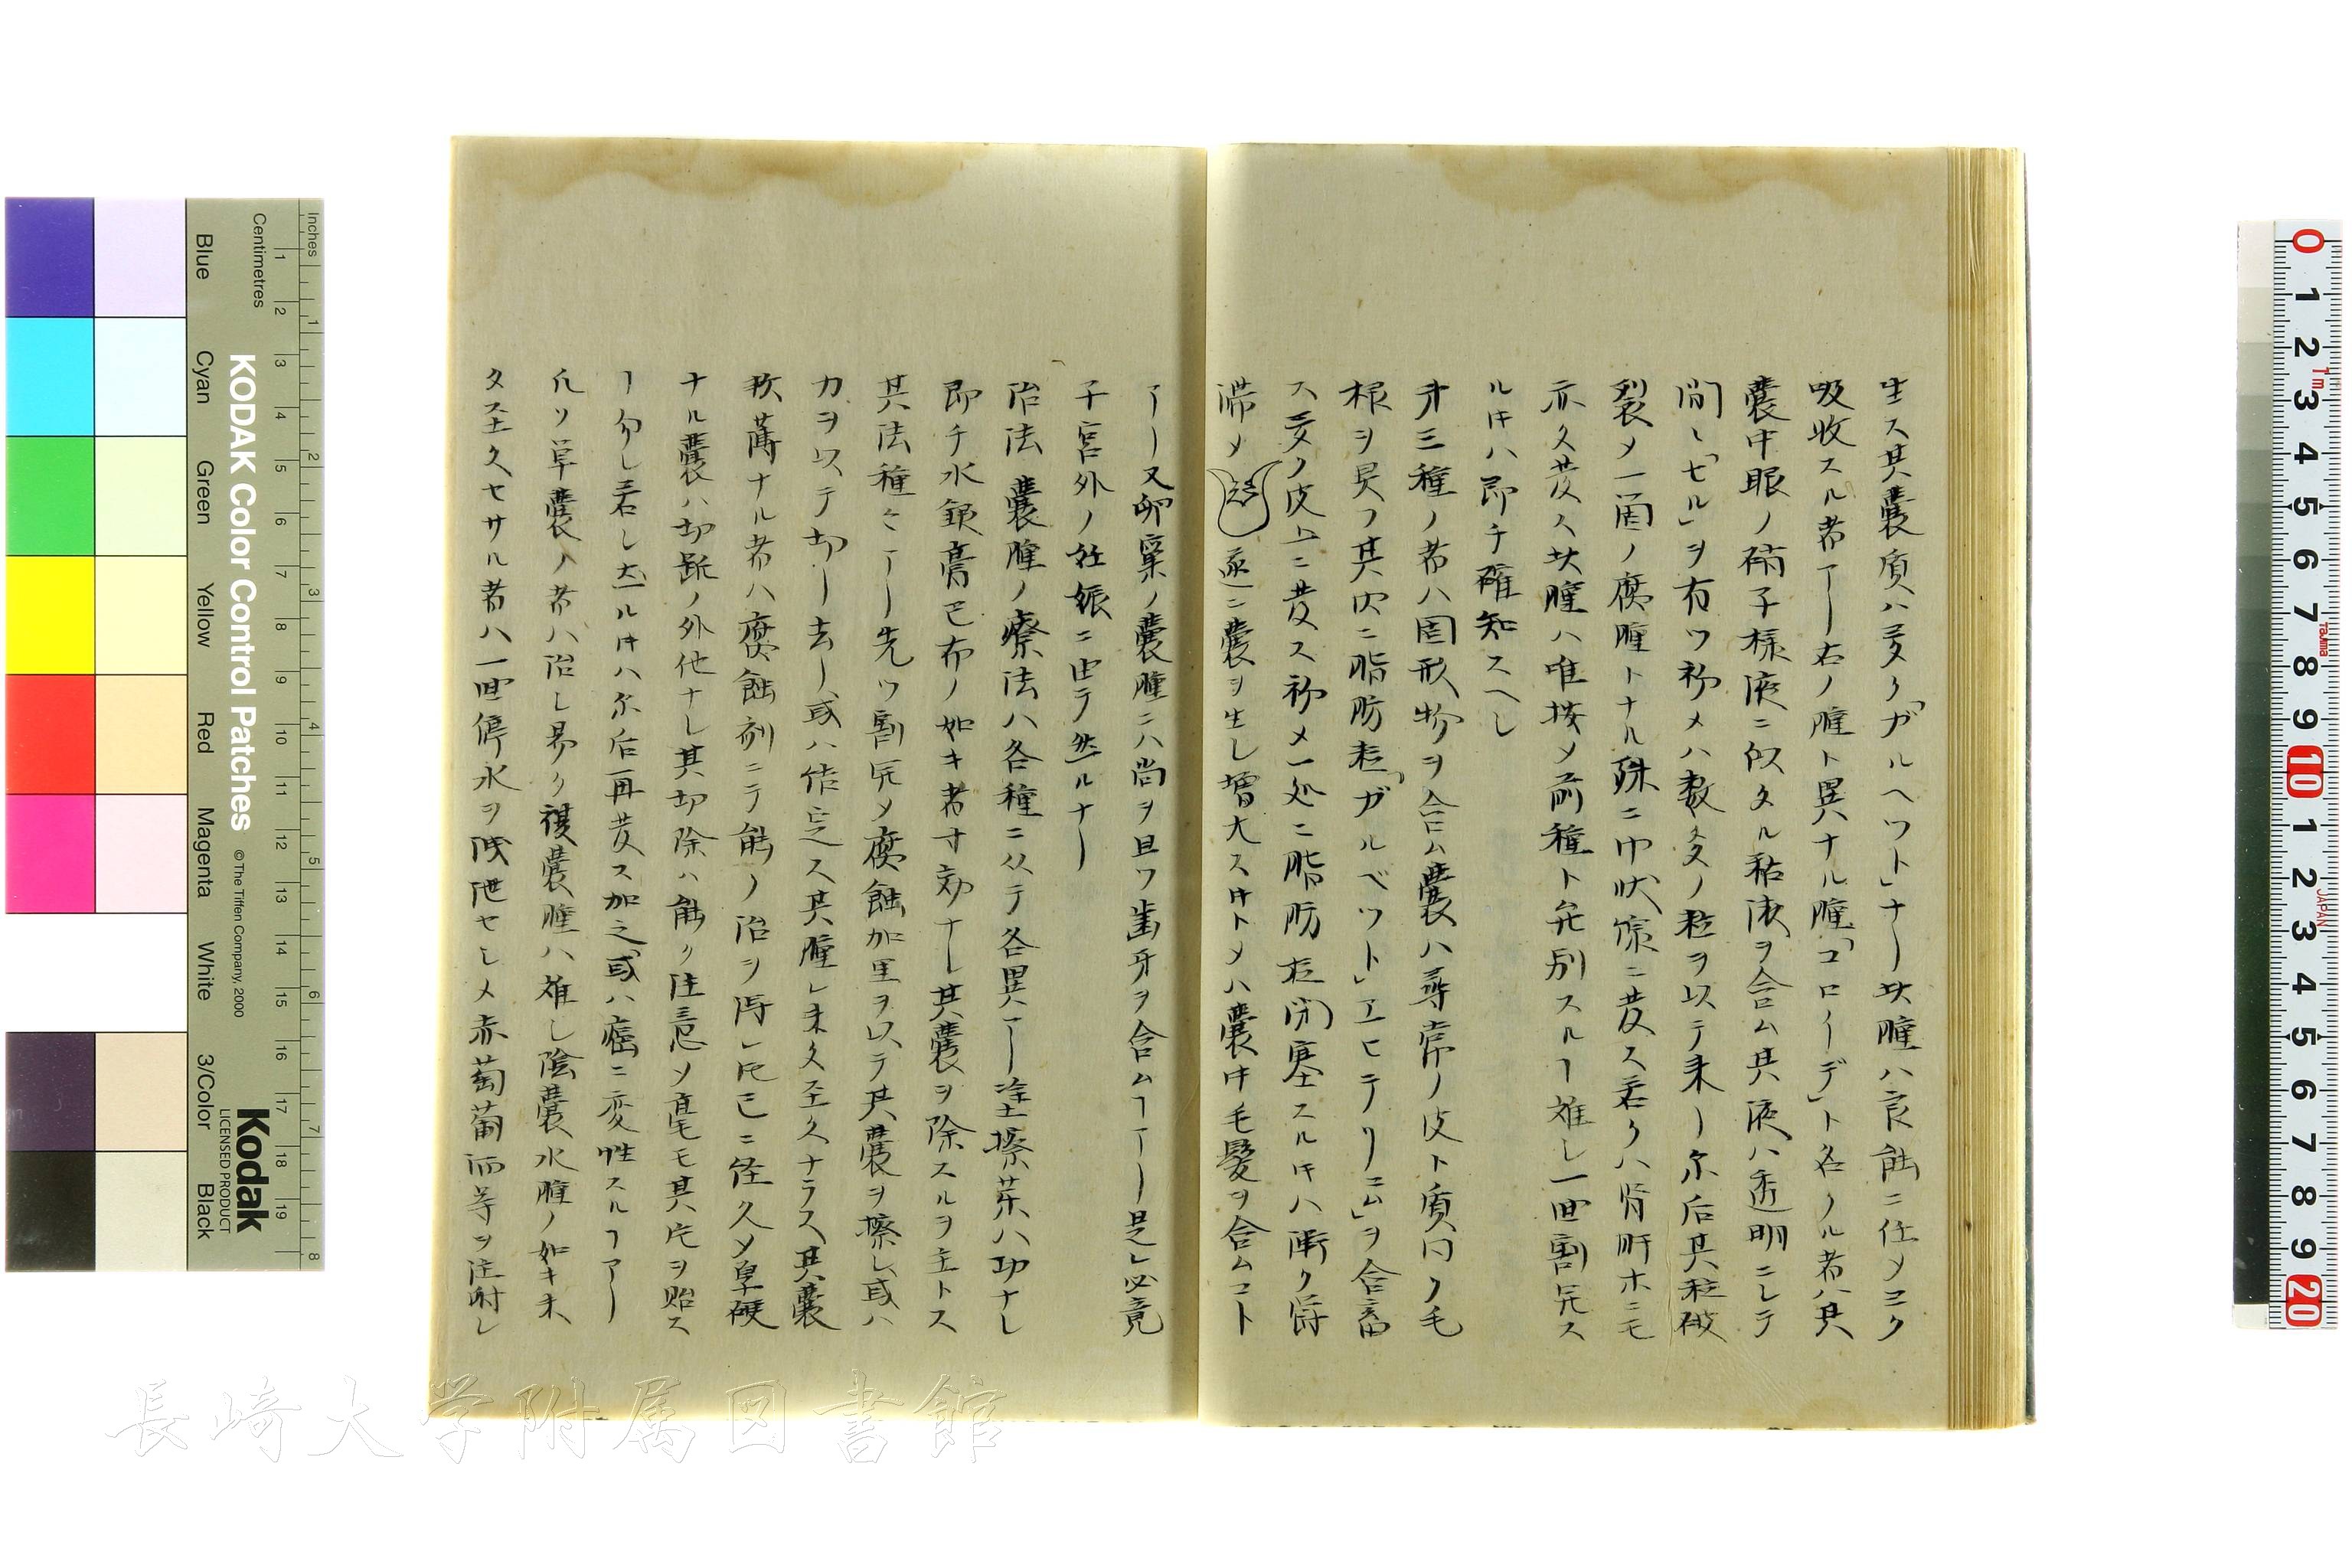 生ス其嚢質ハ多ク「ガルヘワト」ナー此腫ハ良能ニ任メヨク
吸收スル者アー右ノ腫ト異ナル腫「コロイーデ」ト名クル者ハ其
嚢中眼ノ硝子様液ニ似タル粘液ヲ含ム其液ハ透明ニシテ
間〻「セル」ヲ有ツ初メハ数多ノ粒ヲ以テ来ー尓后其粒破
裂メ一箇ノ腐腫トナル殊ニ巾状腺ニ発ス若クハ腎肝ホニモ
亦タ発ス此腫ハ唯按メ前種ト弁別スルヿ難し一回割開ス
ル寸ハ即チ確知スヘし
才三種ノ者ハ固形物ヲ含ム嚢ハ尋常ノ皮ト質同ク毛
根ヲ具フ其内ニ脂肪粒「ガルベツト」エヒテリーム」ヲ含畜
ス多ク皮上ニ発ス初メ一処ニ脂肪粒閉塞スル寸ハ漸ク欝
滞メ遂ニ嚢ヲ生し増大ス寸トメハ嚢中毛髪ヲ含ムコト
アー又卵巣ノ嚢腫ニハ尚ヲ且ツ歯牙ヲ含ムヿアー是レ必竟
子宮外ノ妊娠ニ由テ然ルナー
治法 嚢腫ノ療法ハ各種ニ从テ各異アー塗擦茶ハ功ナし
即チ水銀膏巴布ノ如キ者寸効ナーし其嚢ヲ除スルヲ主トス
其法種〻アー先ツ割開メ腐蝕加里ヲ以テ其嚢ヲ擦し或ハ
力ヲ以テ切ー去ー或ハ結定ス其腫レ未タ至大ナラス其嚢
軟薄ナル者ハ腐蝕剤ニテ能ノ治ヲ得レ𪜈已ニ経久メ皐硬
ナル嚢ハ切断ノ外他ナし其切除ハ能ク注意メ毫モ其片ヲ貽ス
ヿ勿レ若し在ル寸ハ尓后再発ス加之或ハ癌ニ変性スルヿアー
凡ソ単嚢ノ者ハ治し易ク複嚢腫ハ難し陰嚢水腫ノ如キ未
タ至大セサル者ハ一回停水ヲ洩泄セしメ赤萄葡酒等ヲ注射し
KODAK Color Control Patches
© The Tiffen Company, 2000
Kodak
LICENSED PRODUCT
Inches
Centimetres
Blue Cyan Green Yellow Red Magenta White 3/Color Black
1 2 3 4 5 6 7 8 9 10 11 12 13 14 15 16 17 18 19
1 2 3 4 5 6 7 8
0 1 2 3 4 5 6 7 8 9 10 1 2 3 4 5 6 7 8 9 20
1m
TAJIMA
JAPAN
長崎大学附属図書館